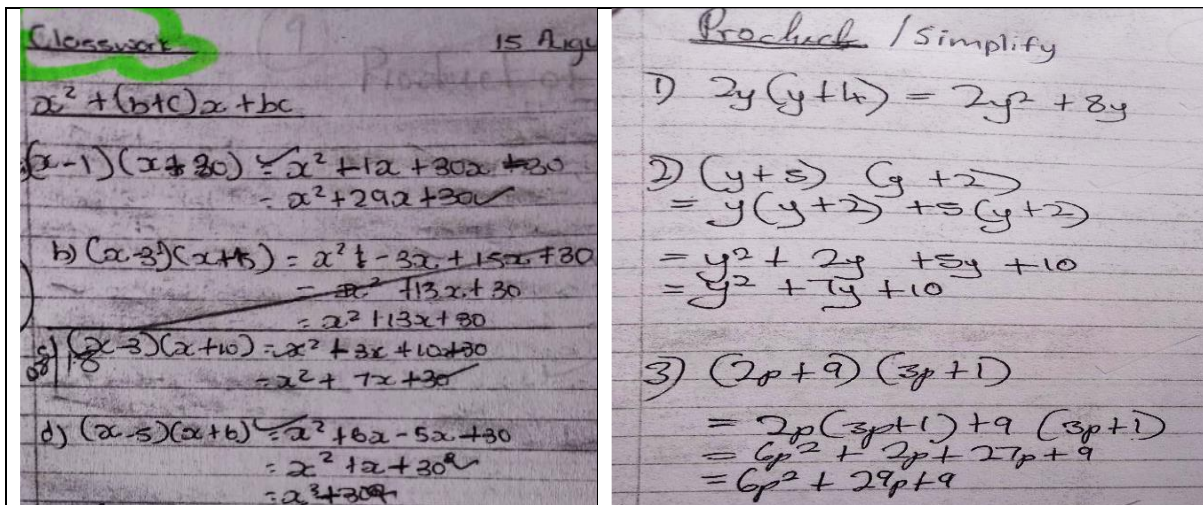 Classwork 15 Augu
x² + (b+c)x + bc
(x-1)(x+30) = x² + 1x + 30x + 30
= x² + 29x + 30
b) (x-3)(x+15) = x² - 3x + 15x + 30
= x² + 13x + 30
= x² + 13x + 30
(x-3)(x+10) = x² + 3x + 10 + 30
= x² + 7x + 30
d) (x-5)(x+6) = x² + 6x - 5x + 30
= x² + x + 30
Product / Simplify
1) 2y(y+4) = 2y² + 8y
2) (y+5) (y+2)
= y(y+2) + 5(y+2)
= y² + 2y + 5y + 10
= y² + 7y + 10
3) (2p+9) (3p+1)
= 2p(3p+1) + 9 (3p+1)
= 6p² + 2p + 27p + 9
= 6p² + 29p + 9